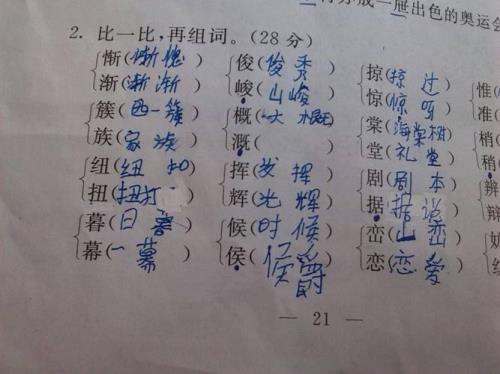 成一届出色的奥运会
2. 比一比,再组词。(28分)
惭(惭愧) 俊(俊秀) 掠(掠过) 惟(
渐(渐渐) 峻(山峻) 惊(惊呀) 准(
簇(西一簇) 概(大概) 棠(海棠树)
族(家族) 溉( ) 堂(礼堂)
纽(纽扣) 挥(发挥) 剧(剧本) 辨
扭(扭打) 辉(光辉) 据(据说) 辩
暮(日暮) 候(时候) 峦(山峦)
幕(一幕) 侯(侯爵) 恋(恋爱)
— 21 —